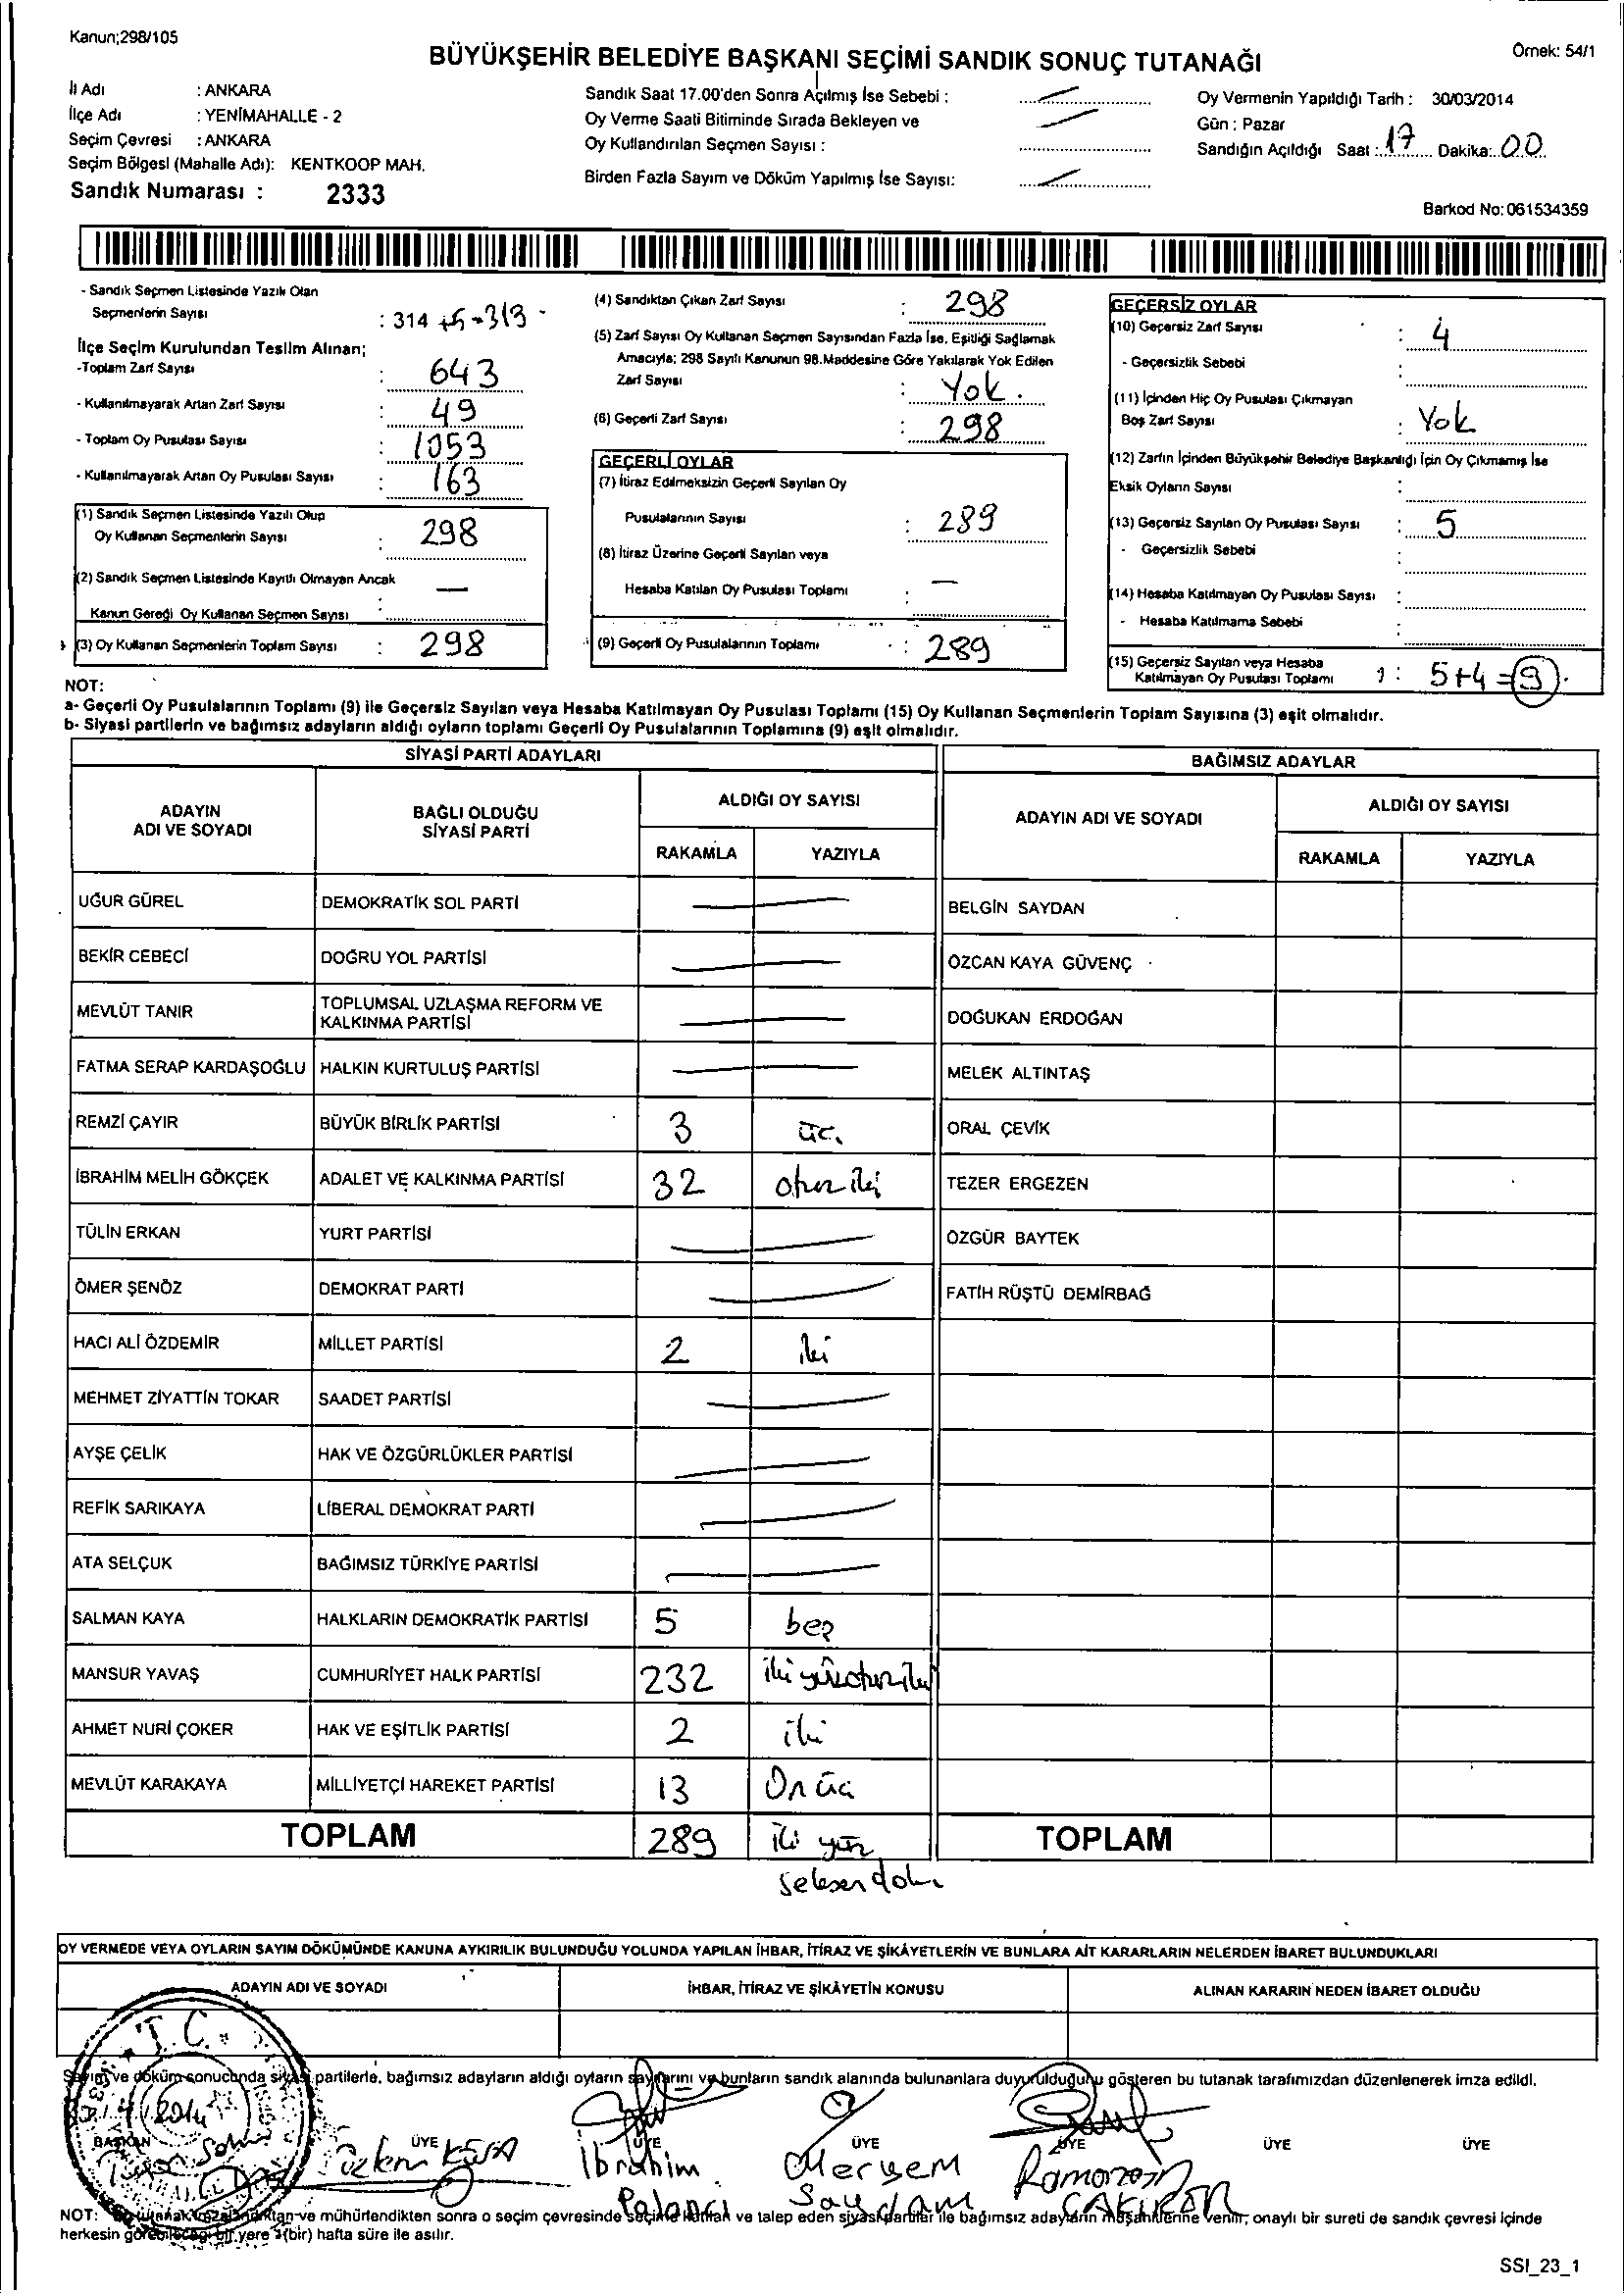 Kanun;298/105
BÜYÜKŞEHİR BELEDİYE BAŞKANI SEÇİMİ SANDIK SONUÇ TUTANAĞI
Örnek: 54/1
İl Adı : ANKARA
İlçe Adı : YENİMAHALLE - 2
Seçim Çevresi : ANKARA
Seçim Bölgesi (Mahalle Adı): KENTKOOP MAH.
Sandık Numarası : 2333
Sandık Saat 17.00'den Sonra Açılmış İse Sebebi :
Oy Verme Saati Bitiminde Sırada Bekleyen ve
Oy Kullandırılan Seçmen Sayısı :
Birden Fazla Sayım ve Döküm Yapılmış İse Sayısı:
Oy Vermenin Yapıldığı Tarih : 30/03/2014
Gün : Pazar
Sandığın Açıldığı Saat : 17 Dakika: 00
Barkod No: 061534359
- Sandık Seçmen Listesinde Yazılı Olan
Seçmenlerin Sayısı : 314 +5=313
İlçe Seçim Kurulundan Teslim Alınan;
-Toplam Zarf Sayısı : 643
- Kullanılmayarak Artan Zarf Sayısı : 49
- Toplam Oy Pusulası Sayısı : 1053
- Kullanılmayarak Artan Oy Pusulası Sayısı : 163
(1) Sandık Seçmen Listesinde Yazılı Olup
Oy Kullanan Seçmenlerin Sayısı : 298
(2) Sandık Seçmen Listesinde Kayıtlı Olmayan Ancak
Kanun Gereği Oy Kullanan Seçmen Sayısı : —
(3) Oy Kullanan Seçmenlerin Toplam Sayısı : 298
(4) Sandıktan Çıkan Zarf Sayısı : 298
(5) Zarf Sayısı Oy Kullanan Seçmen Sayısından Fazla İse, Eşitliği Sağlamak
Amacıyla; 298 Sayılı Kanunun 98.Maddesine Göre Yakılarak Yok Edilen
Zarf Sayısı : Yok.
(6) Geçerli Zarf Sayısı : 298
GEÇERLİ OYLAR
(7) İtiraz Edilmeksizin Geçerli Sayılan Oy
Pusulalarının Sayısı : 289
(8) İtiraz Üzerine Geçerli Sayılan veya
Hesaba Katılan Oy Pusulası Toplamı : —
(9) Geçerli Oy Pusulalarının Toplamı : 289
GEÇERSİZ OYLAR
(10) Geçersiz Zarf Sayısı : 4
- Geçersizlik Sebebi :
(11) İçinden Hiç Oy Pusulası Çıkmayan
Boş Zarf Sayısı : Yok
(12) Zarfın İçinden Büyükşehir Belediye Başkanlığı İçin Oy Çıkmamış İse
Eksik Oyların Sayısı :
(13) Geçersiz Sayılan Oy Pusulası Sayısı : 5
- Geçersizlik Sebebi :
(14) Hesaba Katılmayan Oy Pusulası Sayısı :
- Hesaba Katılmama Sebebi :
(15) Geçersiz Sayılan veya Hesaba
Katılmayan Oy Pusulası Toplamı : 5+4=9
NOT:
a- Geçerli Oy Pusulalarının Toplamı (9) ile Geçersiz Sayılan veya Hesaba Katılmayan Oy Pusulası Toplamı (15) Oy Kullanan Seçmenlerin Toplam Sayısına (3) eşit olmalıdır.
b- Siyasi partilerin ve bağımsız adayların aldığı oyların toplamı Geçerli Oy Pusulalarının Toplamına (9) eşit olmalıdır.
SİYASİ PARTİ ADAYLARI
BAĞIMSIZ ADAYLAR
ADAYIN ADI VE SOYADI
BAĞLI OLDUĞU SİYASİ PARTİ
ALDIĞI OY SAYISI
RAKAMLA YAZIYLA
ADAYIN ADI VE SOYADI
ALDIĞI OY SAYISI
RAKAMLA YAZIYLA
UĞUR GÜREL DEMOKRATİK SOL PARTİ — BELGİN SAYDAN
BEKİR CEBECİ DOĞRU YOL PARTİSİ — ÖZCAN KAYA GÜVENÇ
MEVLÜT TANIR TOPLUMSAL UZLAŞMA REFORM VE KALKINMA PARTİSİ — DOĞUKAN ERDOĞAN
FATMA SERAP KARDAŞOĞLU HALKIN KURTULUŞ PARTİSİ — MELEK ALTINTAŞ
REMZİ ÇAYIR BÜYÜK BİRLİK PARTİSİ 3 üç ORAL ÇEVİK
İBRAHİM MELİH GÖKÇEK ADALET VE KALKINMA PARTİSİ 32 otuz iki TEZER ERGEZEN
TÜLİN ERKAN YURT PARTİSİ — ÖZGÜR BAYTEK
ÖMER ŞENÖZ DEMOKRAT PARTİ — FATİH RÜŞTÜ DEMİRBAĞ
HACI ALİ ÖZDEMİR MİLLET PARTİSİ 2 iki
MEHMET ZİYATTİN TOKAR SAADET PARTİSİ —
AYŞE ÇELİK HAK VE ÖZGÜRLÜKLER PARTİSİ —
REFİK SARIKAYA LİBERAL DEMOKRAT PARTİ —
ATA SELÇUK BAĞIMSIZ TÜRKİYE PARTİSİ —
SALMAN KAYA HALKLARIN DEMOKRATİK PARTİSİ 5 beş
MANSUR YAVAŞ CUMHURİYET HALK PARTİSİ 232 iki yüzotuziki
AHMET NURİ ÇOKER HAK VE EŞİTLİK PARTİSİ 2 iki
MEVLÜT KARAKAYA MİLLİYETÇİ HAREKET PARTİSİ 13 On üç
TOPLAM 289 iki yüz TOPLAM
seksen dok
OY VERMEDE VEYA OYLARIN SAYIM DÖKÜMÜNDE KANUNA AYKIRILIK BULUNDUĞU YOLUNDA YAPILAN İHBAR, İTİRAZ VE ŞİKÂYETLERİN VE BUNLARA AİT KARARLARIN NELERDEN İBARET BULUNDUKLARI
ADAYIN ADI VE SOYADI İHBAR, İTİRAZ VE ŞİKÂYETİN KONUSU ALINAN KARARIN NEDEN İBARET OLDUĞU
T.C.
Sayım ve döküm sonucunda siyasi partilerle, bağımsız adayların aldığı oyların sayılarını ve bunların sandık alanında bulunanlara duyurulduğunu gösteren bu tutanak tarafımızdan düzenlenerek imza edildi.
2014
BAŞKAN ÜYE ÜYE ÜYE ÜYE ÜYE ÜYE
İbrahim Meryem Ramazan
Palancı Saydam ÇAKIRER
NOT: ve mühürlendikten sonra o seçim çevresinde seçime katılan ve talep eden siyasi partiler ile bağımsız adayların müşahitlerine verilir, onaylı bir sureti de sandık çevresi içinde
herkesin görebileceği bir yere 1(bir) hafta süre ile asılır.
SSI_23_1